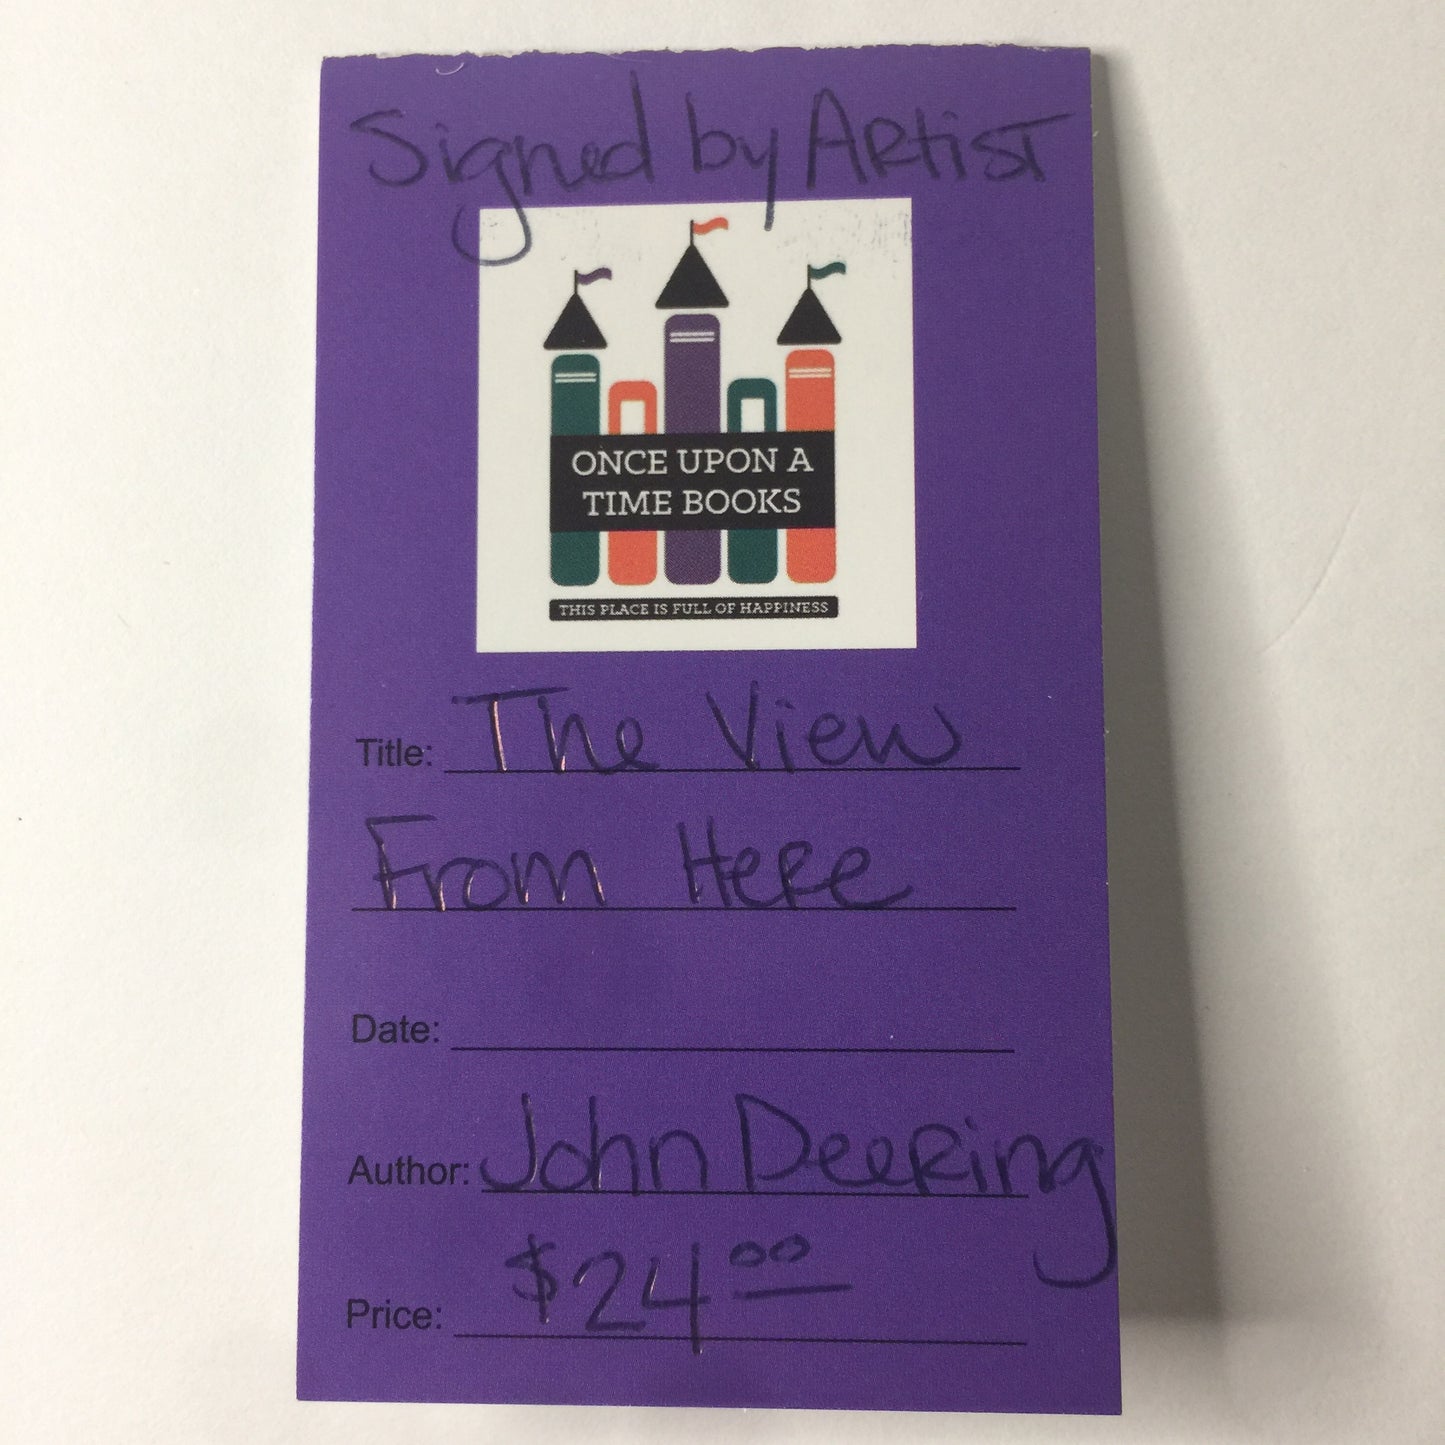 Signed by Artist
ONCE UPON A
TIME BOOKS
THIS PLACE IS FULL OF HAPPINESS
Title: The View
From Here
Date:
Author: John Deering
Price: $24.00